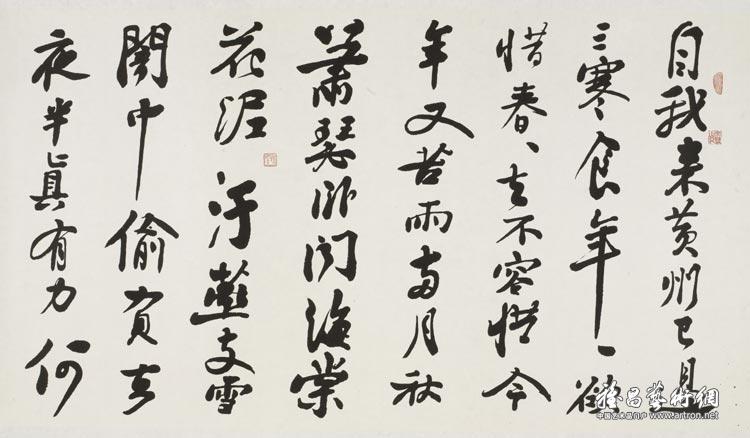 自我来黄州已過
三寒食年、欲
惜春、去不容惜今
年又苦雨兩月秋
蕭瑟卧聞海棠
花泥汙燕支雪
闇中偷負去
夜半真有力何
雅昌藝術網
中国艺术品门户 www.artron.net